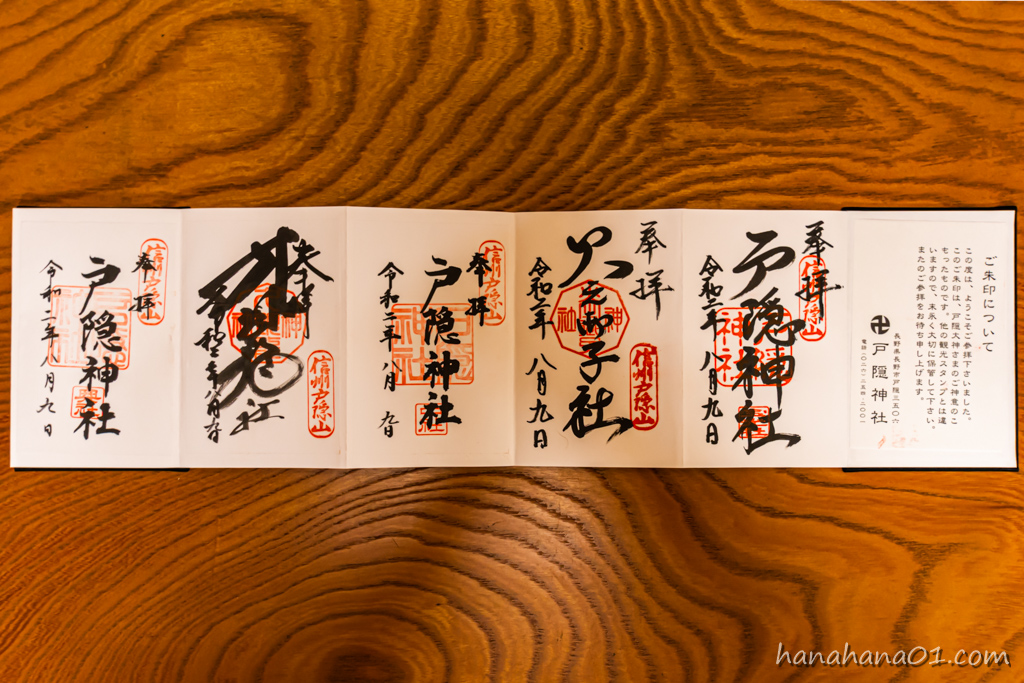 ご朱印について
この度は、ようこそご参拝下さいました。
このご朱印は、戸隠大神さまのご神意のこ
もったものです。他の観光スタンプとは違
いますので、末永く大切に保管して下さい。
またのご参拝をお待ち申し上げます。
長野県長野市戸隠三五〇六
卍戸隠神社
電話(〇二六)二五四・二〇〇一
奉拝
信州戸隠山
戸隠神社
令和二年八月九日
奉拝
信州戸隠山
火之御子社
令和二年八月九日
奉拝
信州戸隠山
戸隠神社
令和二年八月九日
奉拝
信州戸隠山
奉拝
信州戸隠山
戸隠神社
令和二年八月九日
hanahana01.com